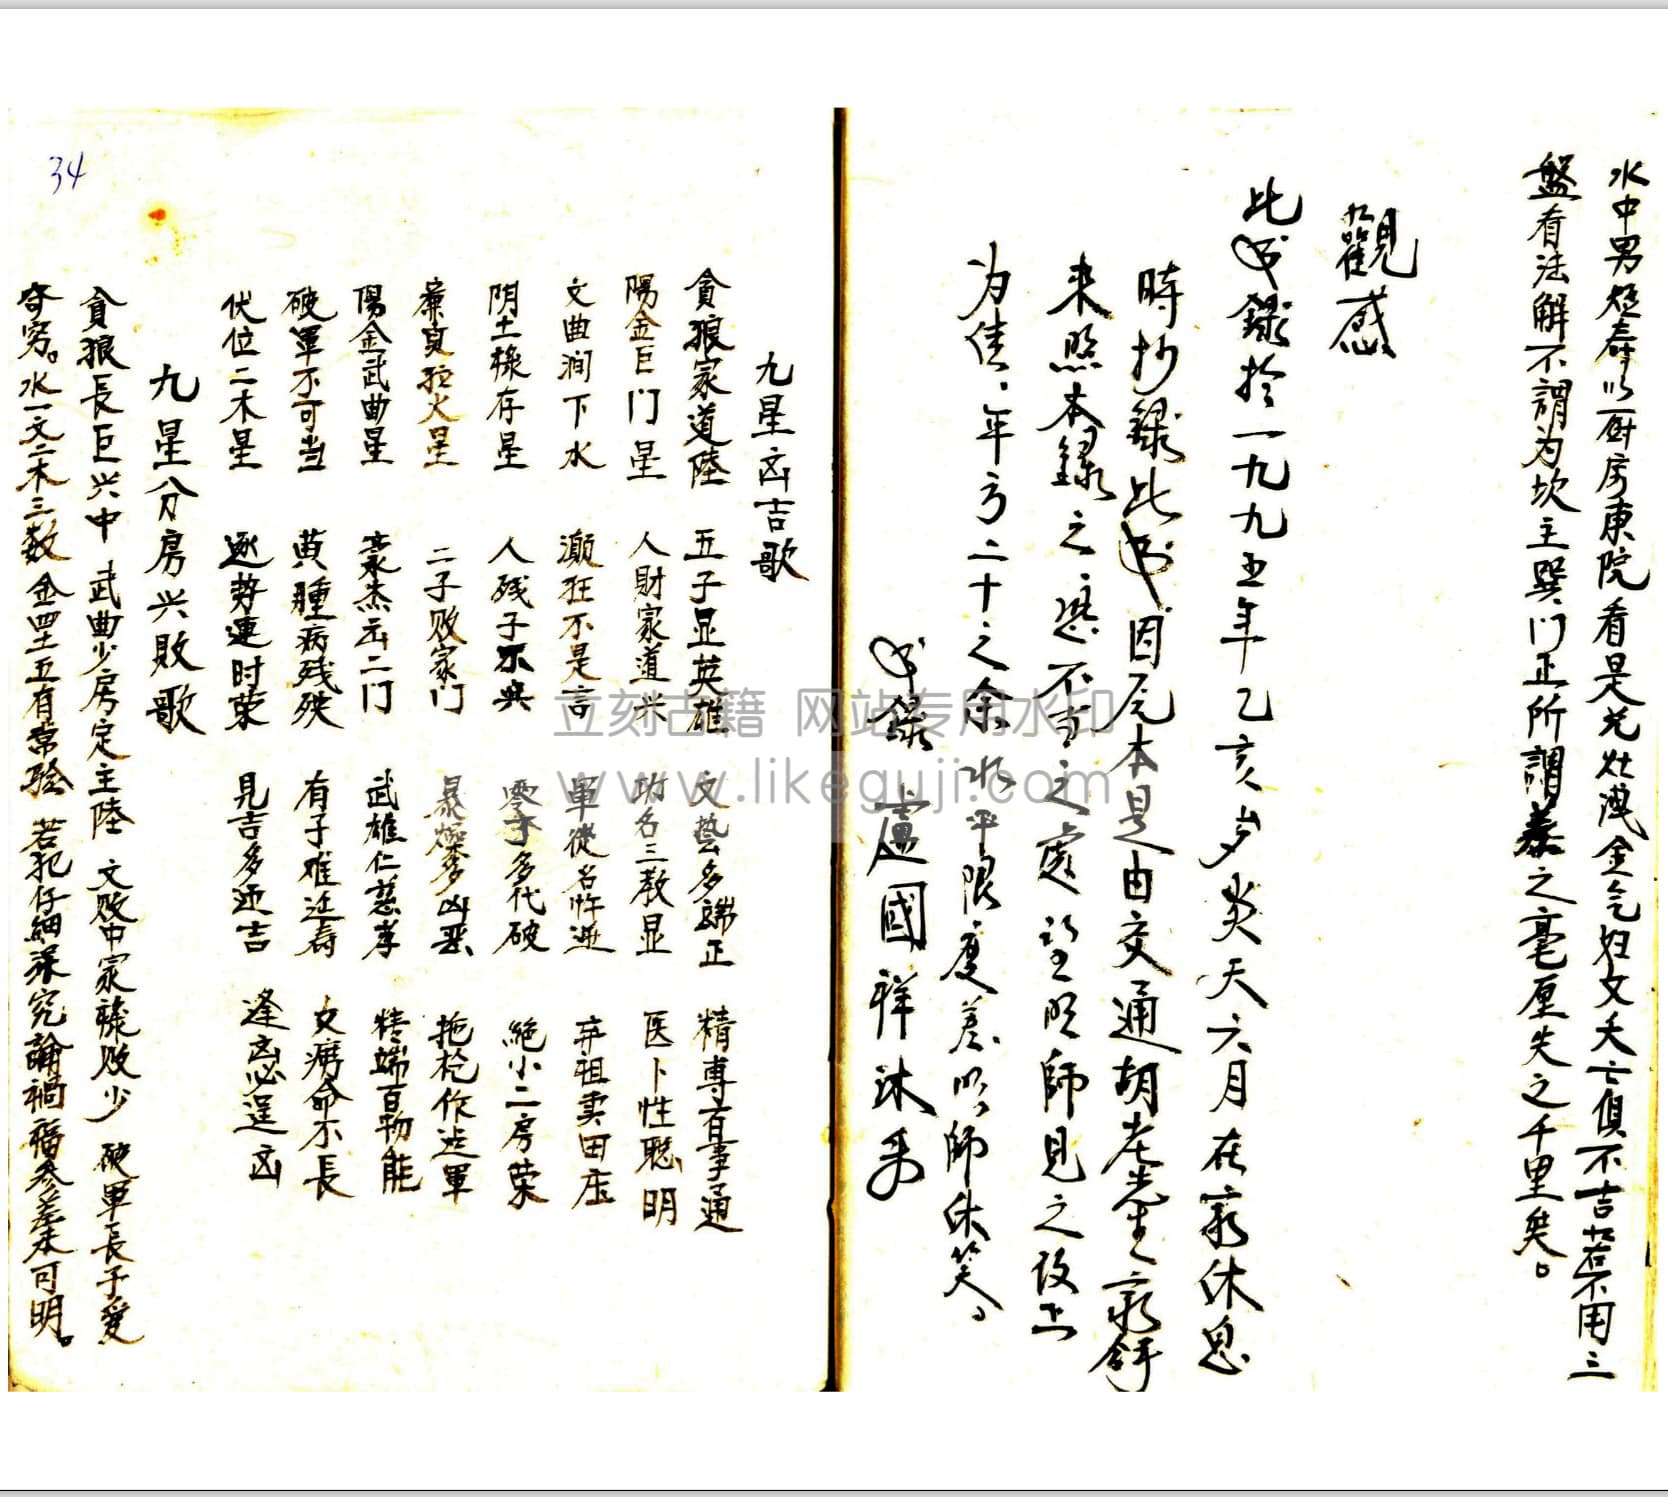 水中男短寿以厨房東院看是兑灶洩金气妇女夭亡俱不吉若不用三
盤看法解不謂为坎主巽门正所謂之毫厘失之千里矣。
觀感
此书錄於一九九五年乙亥岁炎天六月在家休息
時抄錄此书因原本是由交通胡老先生家
来照本録之恐不之處望明師見之改正
为佳、年方二十之余水平限度差明師休笑、
书錄 盧國祥沐手
34
九星凶吉歌
貪狼家道陸 五子显英雄 文藝多端正 精専百事通
陽金巨门星 人財家道兴 功名三教显 医卜性聪明
文曲涧下水 瀕狂不是言 軍徒名忤逆 弃祖卖田庄
阴土禄存星 人残子不兴 零丁多代破 絕小二房荣
廉貞独火星 二子败家门 暴燥多凶恶 拖枪作进軍
陽金武曲星 豪杰出二门 武雄仁慈孝 精端百物能
破軍不可当 黄腫病残殃 有子难延寿 女痨命不長
伏位二木星 逐势連时荣 見吉多迎吉 逢凶必逞凶
九星分房兴敗歌
貪狼長巨兴中 武曲少房定主陸 文败中家祿败少 破軍長子受
奇穷。水一文二木三数 金四土五有常验 若犯仔細深究論 禍福參差未可明。
立刻古籍 网站专用水印
www.likeguji.com